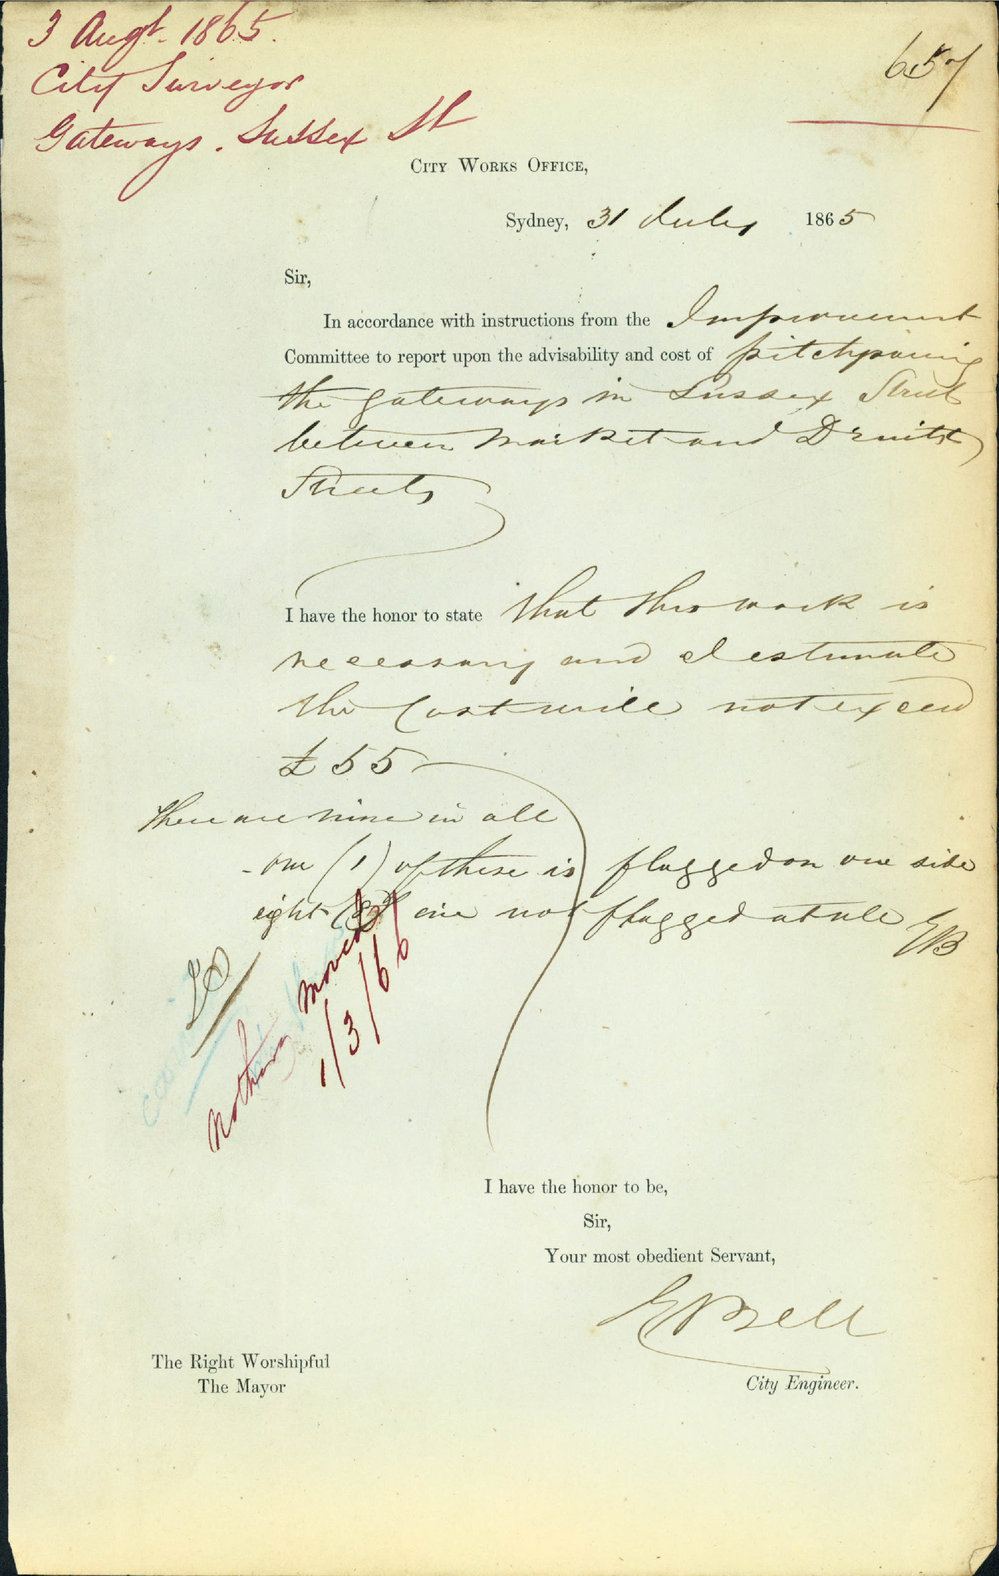 3 Augt. 1865.
City Surveyor
Gateways. Sussex St
657
City Works Office,
Sydney, 31 July 1865
Sir,
In accordance with instructions from the Improvement
Committee to report upon the advisability and cost of pitchpaving
the gateways in Sussex Street
between Market and Druitt
Streets
I have the honor to state that this work is
necessary and I estimate
the Cost will not exceed
£55
There are nine in all
one (1) of these is flagged on one side
eight (8) are not flagged at all EB
Nothing moved
1/3/66
I have the honor to be,
Sir,
Your most obedient Servant,
E Bell
City Engineer.
The Right Worshipful
The Mayor